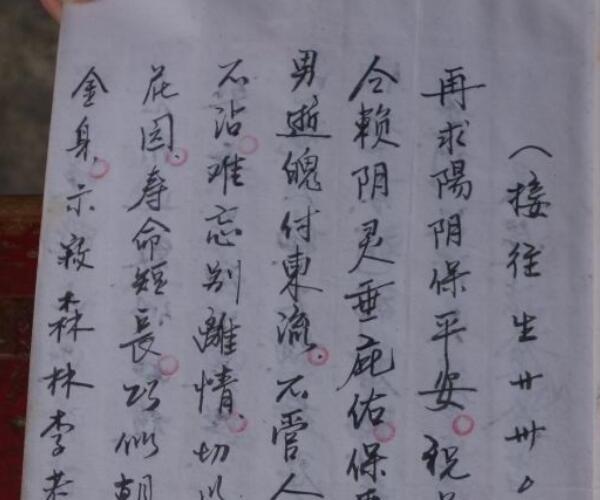 （接往生廿卅
再求陽阴保平安祝
仝赖阴灵垂庇佑保
男逝魄付東流不管人
不沾难忘别離情切以
花园寿命短長巧似朝
金身示寂森林李老